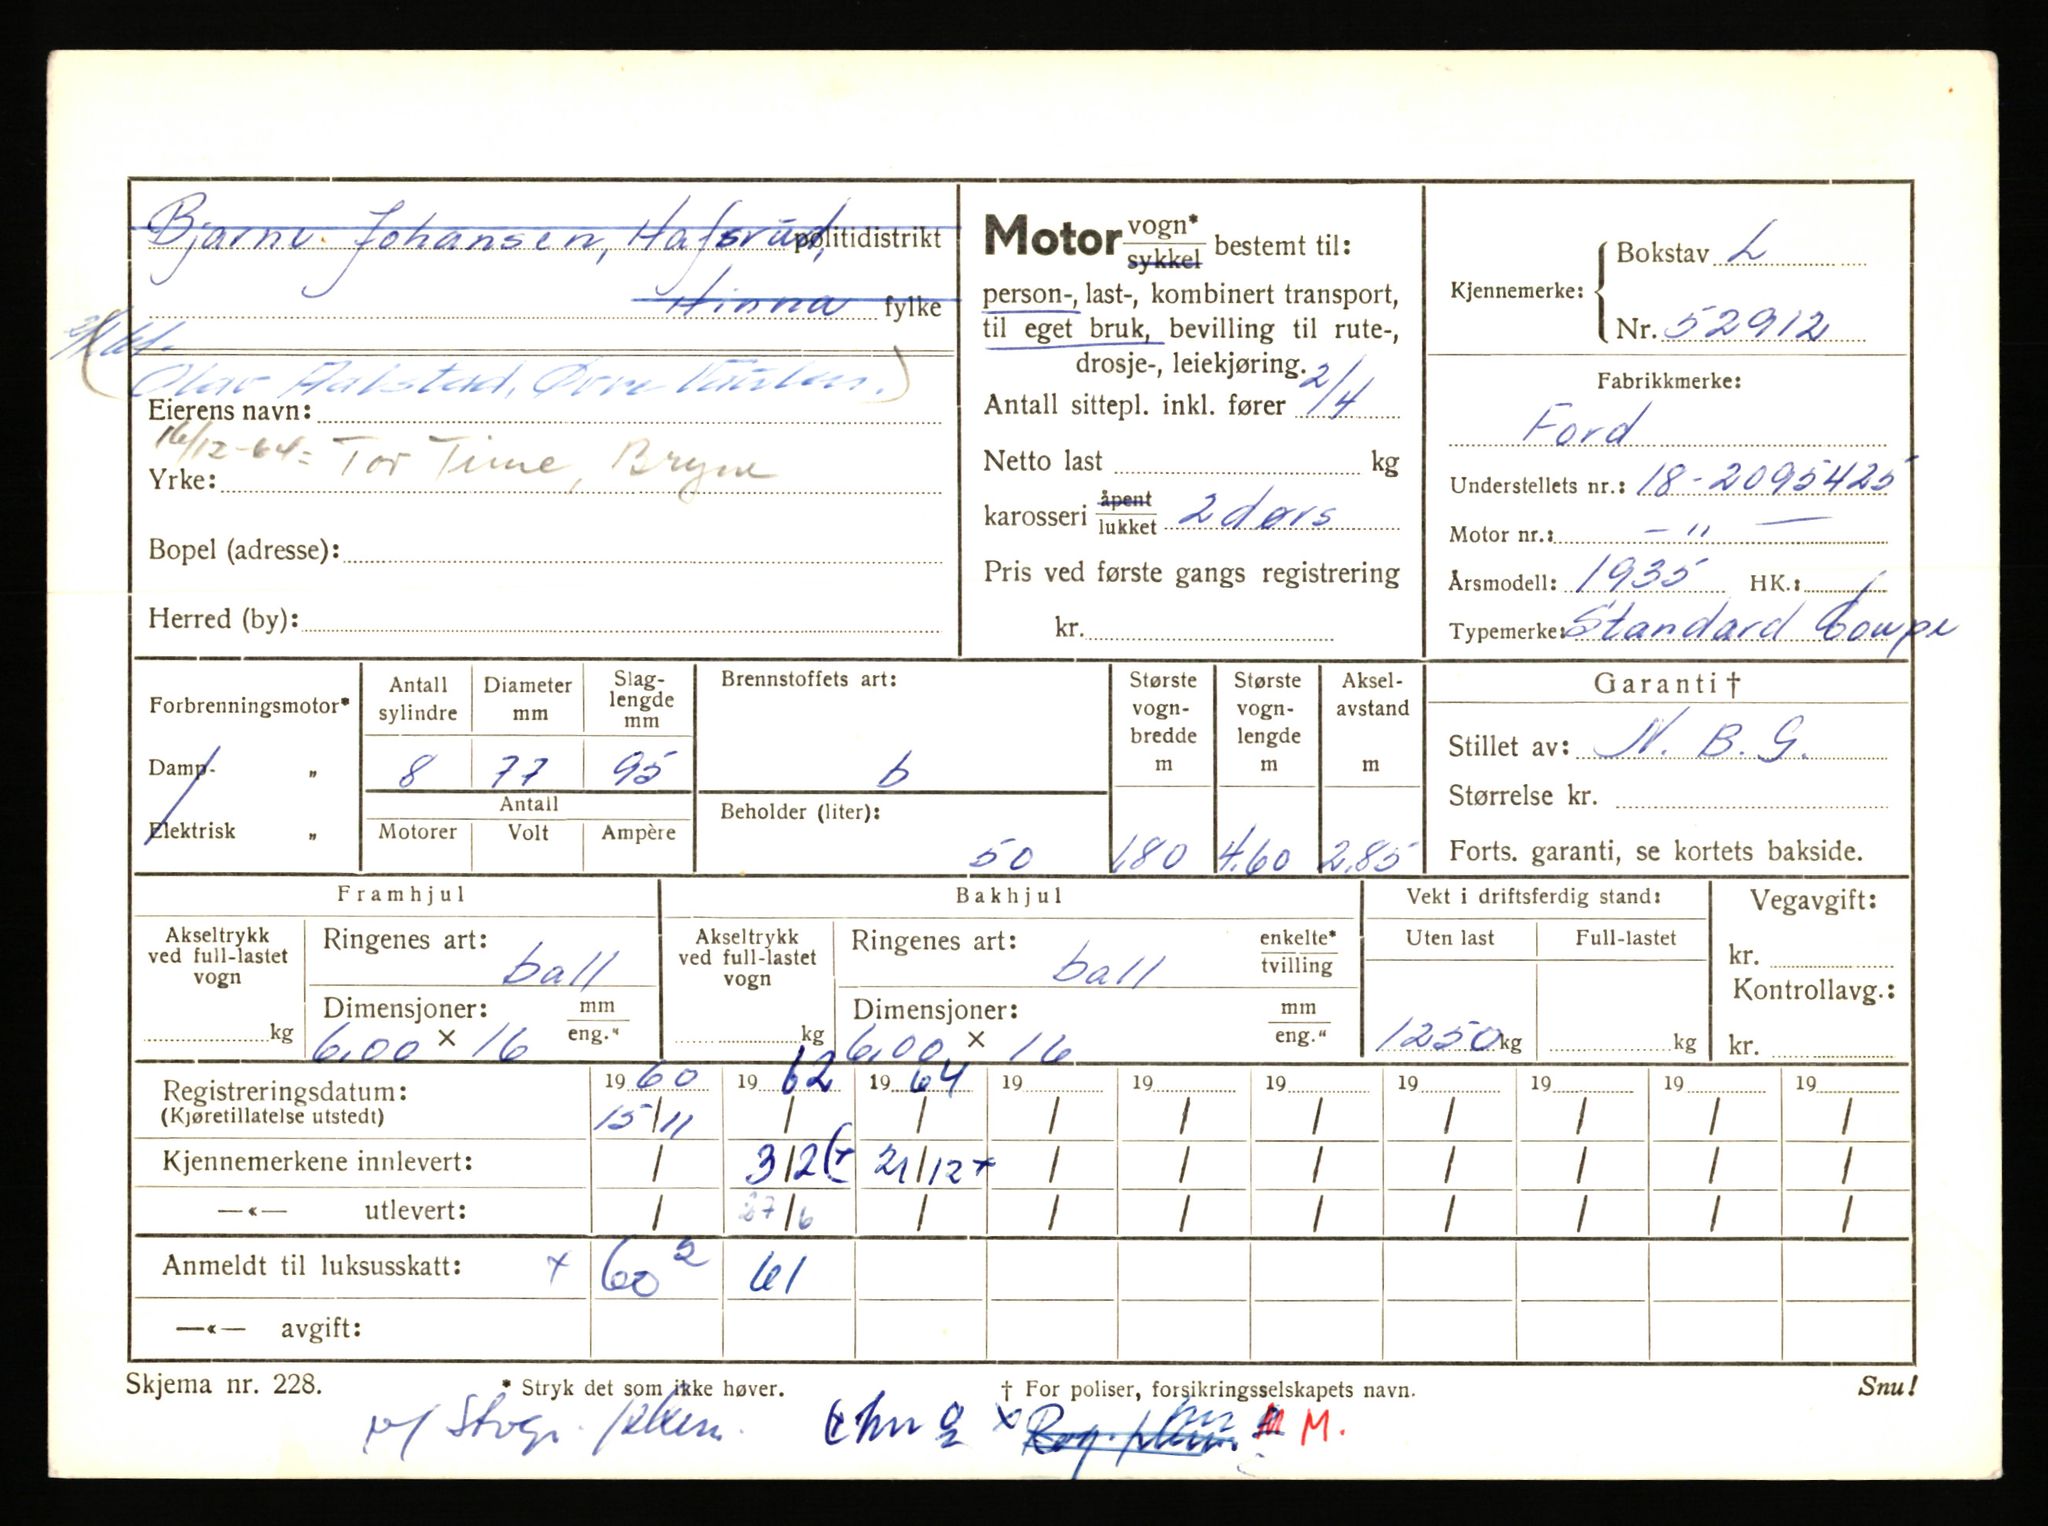 Bjarne Johansen, Hafsrud, politidistrikt
Hinna fylke
Olav Aalstad, Øvre
Eierens navn:
16/12-64 = Tor Time, Bryne
Yrke:
Bopel (adresse):
Herred (by):
Motor vogn* sykkel bestemt til:
person-, last-, kombinert transport,
til eget bruk, bevilling til rute-,
drosje-, leiekjøring.
Antall sittepl. inkl. fører 2/4
Netto last kg
karosseri åpent lukket 2 dørs
Pris ved første gangs registrering
kr.
Kjennemerke: Bokstav L
Nr. 52912
Fabrikkmerke:
Ford
Understellets nr.: 18-2095425
Motor nr.: - " -
Årsmodell: 1935 HK.:
Typemerke: Standard Coupe
Forbrenningsmotor*
Damp- "
Elektrisk "
Antall sylindre
8
Diameter mm
77
Slag-lengde mm
95
Antall
Motorer Volt Ampère
Brennstoffets art:
b
Beholder (liter):
50
Største vogn-bredde m
1,80
Største vogn-lengde m
4,60
Aksel-avstand m
2,85
Garanti †
Stillet av: N. B. G.
Størrelse kr.
Forts. garanti, se kortets bakside.
Framhjul
Akseltrykk ved full-lastet vogn
kg
Ringenes art:
ball
Dimensjoner: mm eng."
6,00 × 16
Bakhjul
Akseltrykk ved full-lastet vogn
kg
Ringenes art: enkelte* tvilling
ball
Dimensjoner: mm eng."
6,00 × 16
Vekt i driftsferdig stand:
Uten last Full-lastet
1250 kg kg
Vegavgift:
kr.
Kontrollavg.:
kr.
Registreringsdatum: 1960 1962 1964 19 19 19 19 19 19 19
(Kjøretillatelse utstedt) 15/11 / / / / / / / / /
Kjennemerkene innlevert: / 3/2 (+ 21/12 + / / / / / / /
—«— utlevert: / 27/6 / / / / / / / /
Anmeldt til luksusskatt: + 60 2 61
—«— avgift:
Skjema nr. 228. * Stryk det som ikke høver. † For poliser, forsikringsselskapets navn. Snu!
M.